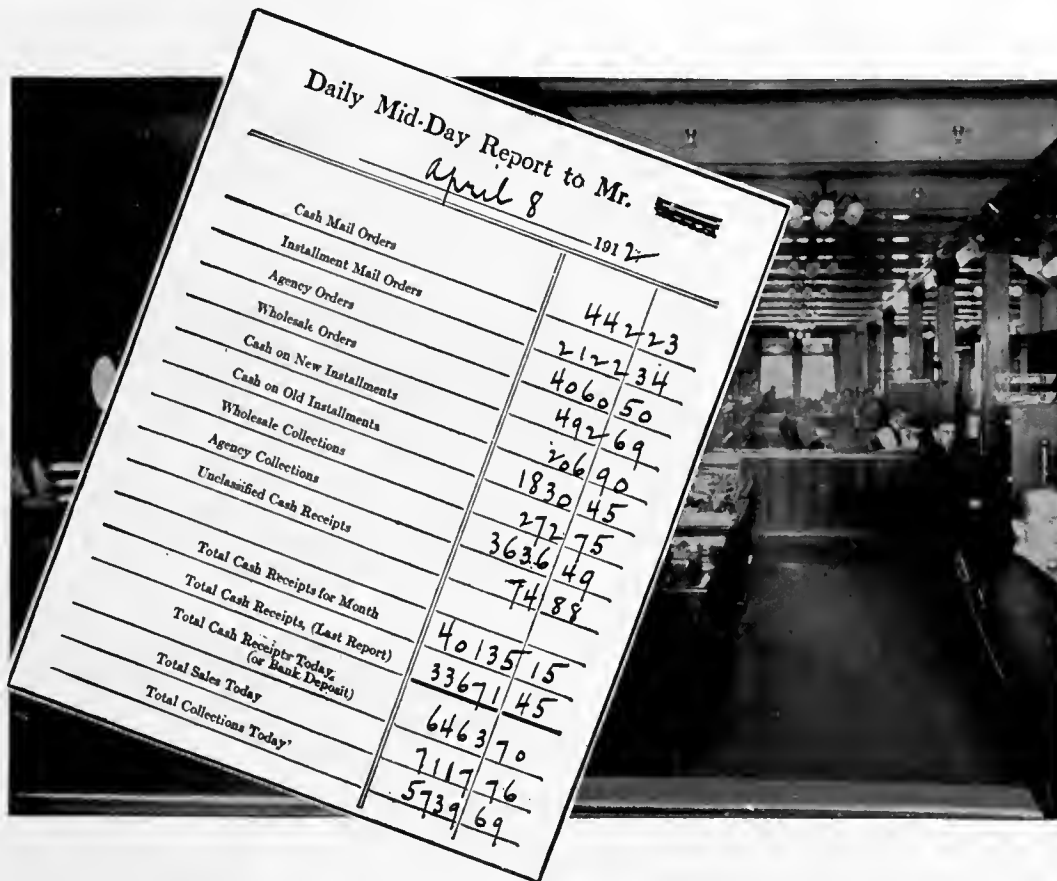 Daily Mid-Day Report to Mr.
April 8 1912
Cash Mail Orders 442 23
Installment Mail Orders 2122 34
Agency Orders 4060 50
Wholesale Orders 492 69
Cash on New Installments 206 90
Cash on Old Installments 1830 45
Wholesale Collections 272 75
Agency Collections 3636 49
Unclassified Cash Receipts 74 88
Total Cash Receipts for Month 40135 15
Total Cash Receipts, (Last Report) 33671 45
Total Cash Receipts Today,
(or Bank Deposit) 6463 70
Total Sales Today 7117 76
Total Collections Today' 5739 69